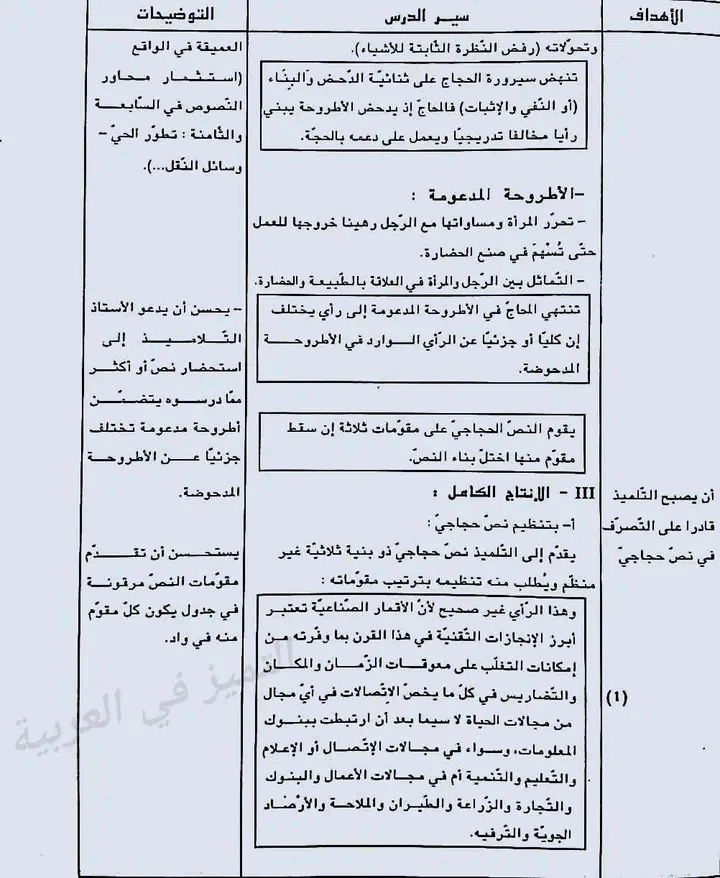 الأهداف
سير الدرس
التوضيحات
أن يصبح التلميذ
قادرا على التصرّف
في نصّ حجاجيّ
(1)
وتحوّلاته (رفض النّظرة الثّابتة للأشياء).
تنهض سيرورة الحجاج على ثنائيّة الدّحض والبناء
(أو النّفي والإثبات) فالمحاجّ إذ يدحض الأطروحة يبني
رأيا مخالفا تدريجيّا ويعمل على دعمه بالحجّة.
-الأطروحة المدعومة :
- تحرّر المرأة ومساواتها مع الرّجل رهينا خروجها للعمل
حتّى تُسْهمَ في صنع الحضارة.
- التّماثل بين الرّجل والمرأة في العلاقة بالطّبيعة والحضارة.
تنتهي المحاجّ في الأطروحة المدعومة إلى رأي يختلف
إن كليّا أو جزئيّا عن الرّأي الـوارد في الأطروحـــة
المدحوضة.
يقوم النصّ الحجاجيّ على مقوّمات ثلاثة إن سقط
مقوّم منها اختلّ بناء النصّ.
III - الإنتاج الكامل :
أ- بتنظيم نصّ حجاجيّ :
يقدّم إلى التّلميذ نصّ حجاجيّ ذو بنية ثلاثيّة غير
منظّم ويُطلب منه تنظيمه بترتيب مقوّماته :
وهذا الرّأي غير صحيح لأنّ الأقمار الصّناعيّة تعتبر
أبرز الإنجازات التّقنيّة في هذا القرن بما وفّرته من
إمكانات التغلّب على معوقات الزّمـان والمكـان
والتّضاريس في كلّ ما يخصّ الإتّصالات في أيّ مجال
من مجالات الحياة لا سيما بعد أن ارتبطت ببنـوك
المعلومات، وسواء في مجالات الإتّصال أو الإعلام
والتّعليم والتّنمية أم في مجالات الأعمال والبنوك
والتّجارة والزّراعة والطّيران والملاحة والأرْصَاد
الجويّة والتّرفيه.
العميقة في الواقع
(استثمار محاور
النّصوص في السّابعـة
والثّامنة : تطوّر الحيّ -
وسائل النّقل...).
- يحسن أن يدعو الأستاذ
التّـلاميـــذ إلى
استحضار نصّ أو أكثـر
ممّا درسـوه يتضمّـــن
أطروحة مدعومة تختلف
جزئيّا عــن الأطروحـة
المدحوضة.
يستحســن أن تقـــدّم
مقوّمات النصّ مرقونـة
في جدول يكون كلّ مقوّم
منه في واد.
التميز في العربية